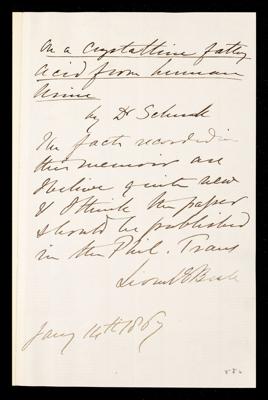 On a crystalline fatty
acid from human
Urine
by Dr Schunck
The facts recorded in
this memoir are
I believe quite new
& I think the paper
should be published
in the Phil. Trans
Lionel S Beale
Jany 14th 1867